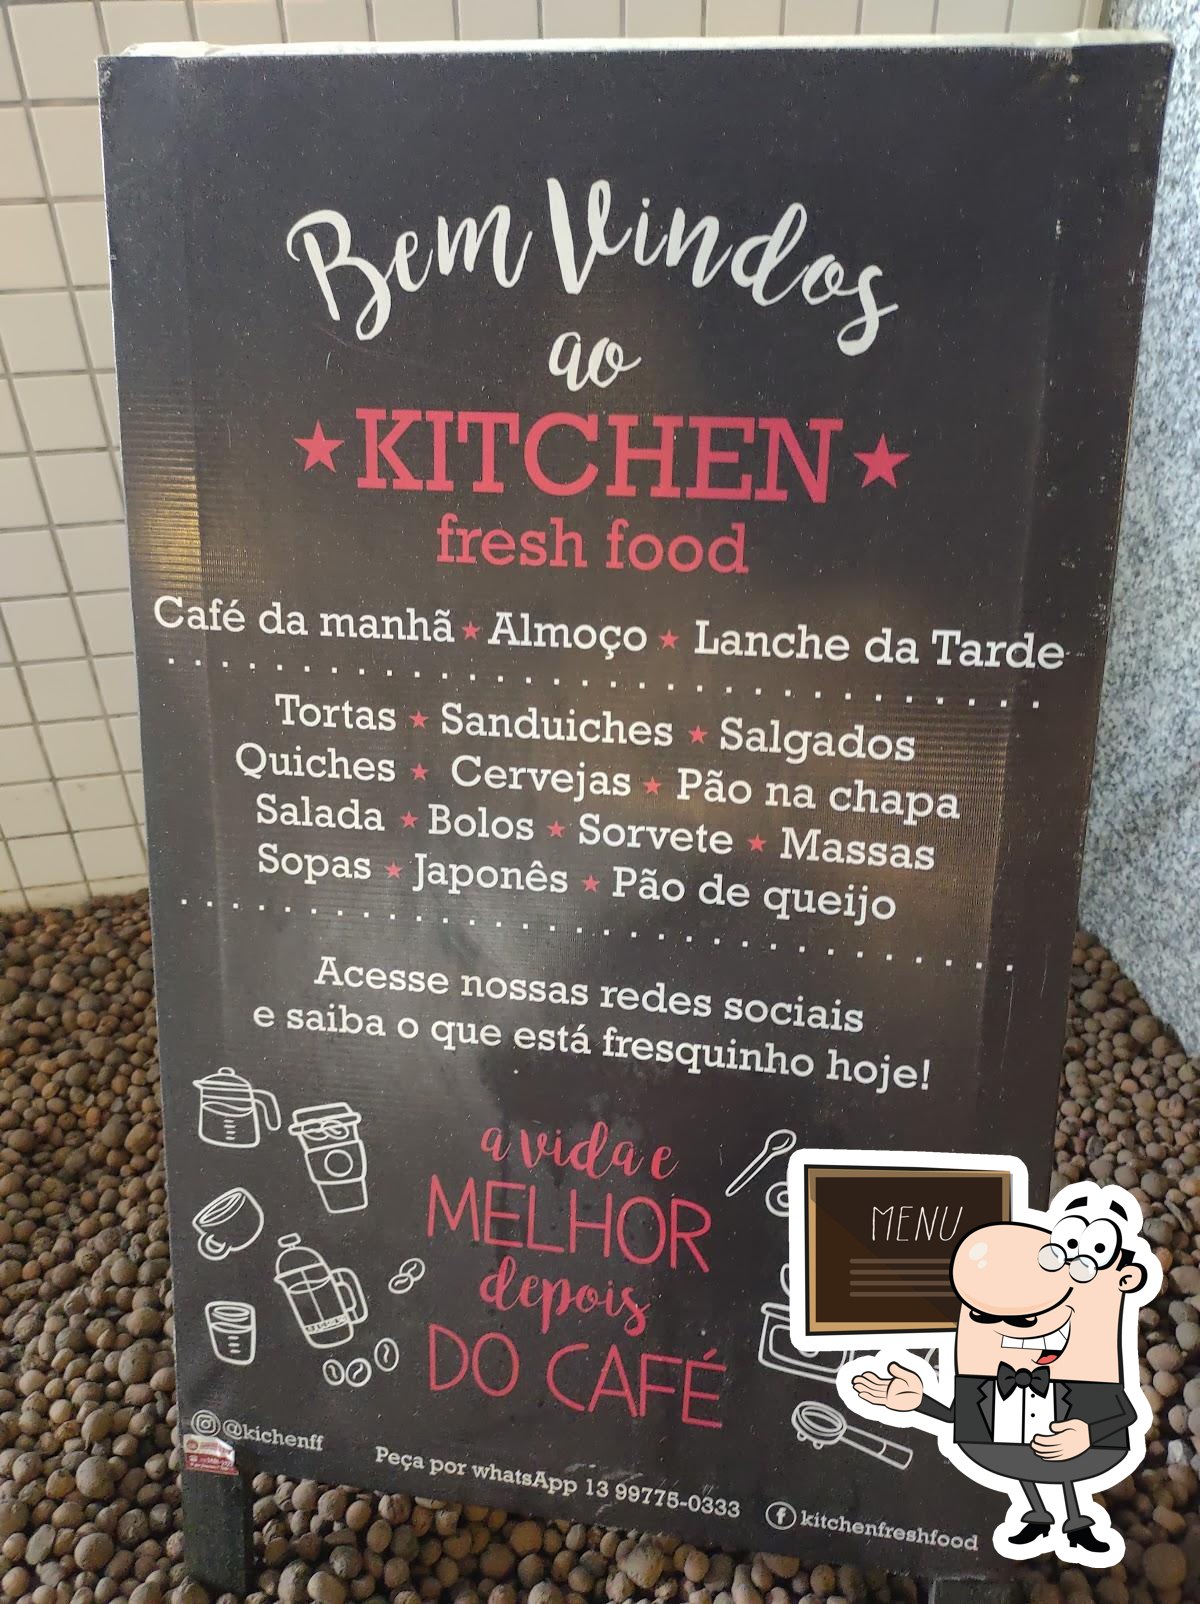 Bem Vindos
ao
★ KITCHEN ★
fresh food
Café da manhã ★ Almoço ★ Lanche da Tarde
Tortas ★ Sanduiches ★ Salgados
Quiches ★ Cervejas ★ Pão na chapa
Salada ★ Bolos ★ Sorvete ★ Massas
Sopas ★ Japonês ★ Pão de queijo
Acesse nossas redes sociais
e saiba o que está fresquinho hoje!
a vida e
MELHOR
depois
DO CAFÉ
@kichenff
Peça por whatsApp 13 99775-0333
kitchenfreshfood
MENU